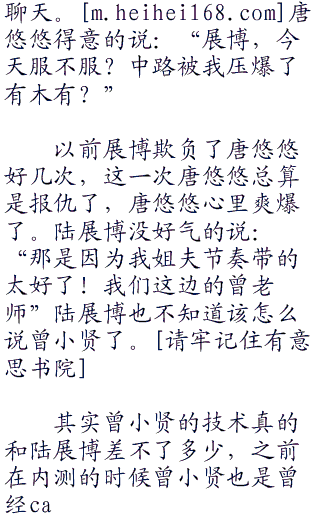 聊天。[m.heihei168.com]唐
悠悠得意的说：“展博，今
天服不服？中路被我压爆了
有木有？”
以前展博欺负了唐悠悠
好几次，这一次唐悠悠总算
是报仇了，唐悠悠心里爽爆
了。陆展博没好气的说：
“那是因为我姐夫节奏带的
太好了！我们这边的曾老
师”陆展博也不知道该怎么
说曾小贤了。[请牢记住有意
思书院]
其实曾小贤的技术真的
和陆展博差不了多少，之前
在内测的时候曾小贤也是曾
经ca